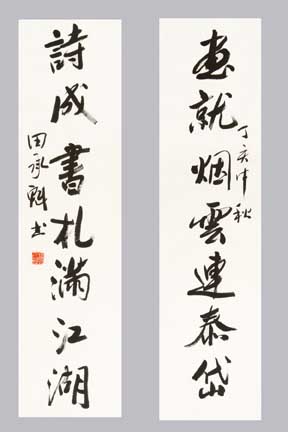 画就烟雲連泰岱
丁亥中秋
詩成書札滿江湖
田承魁书